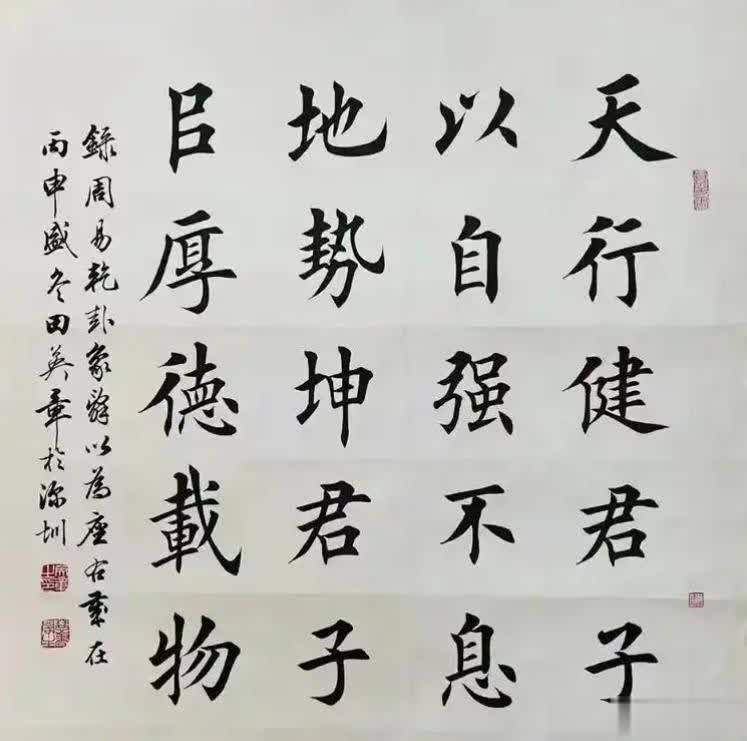 天行健君子
以自强不息
地势坤君子
㠯厚德載物
錄周易乾卦象辞以為座右歲在
丙申盛冬田英章於深圳